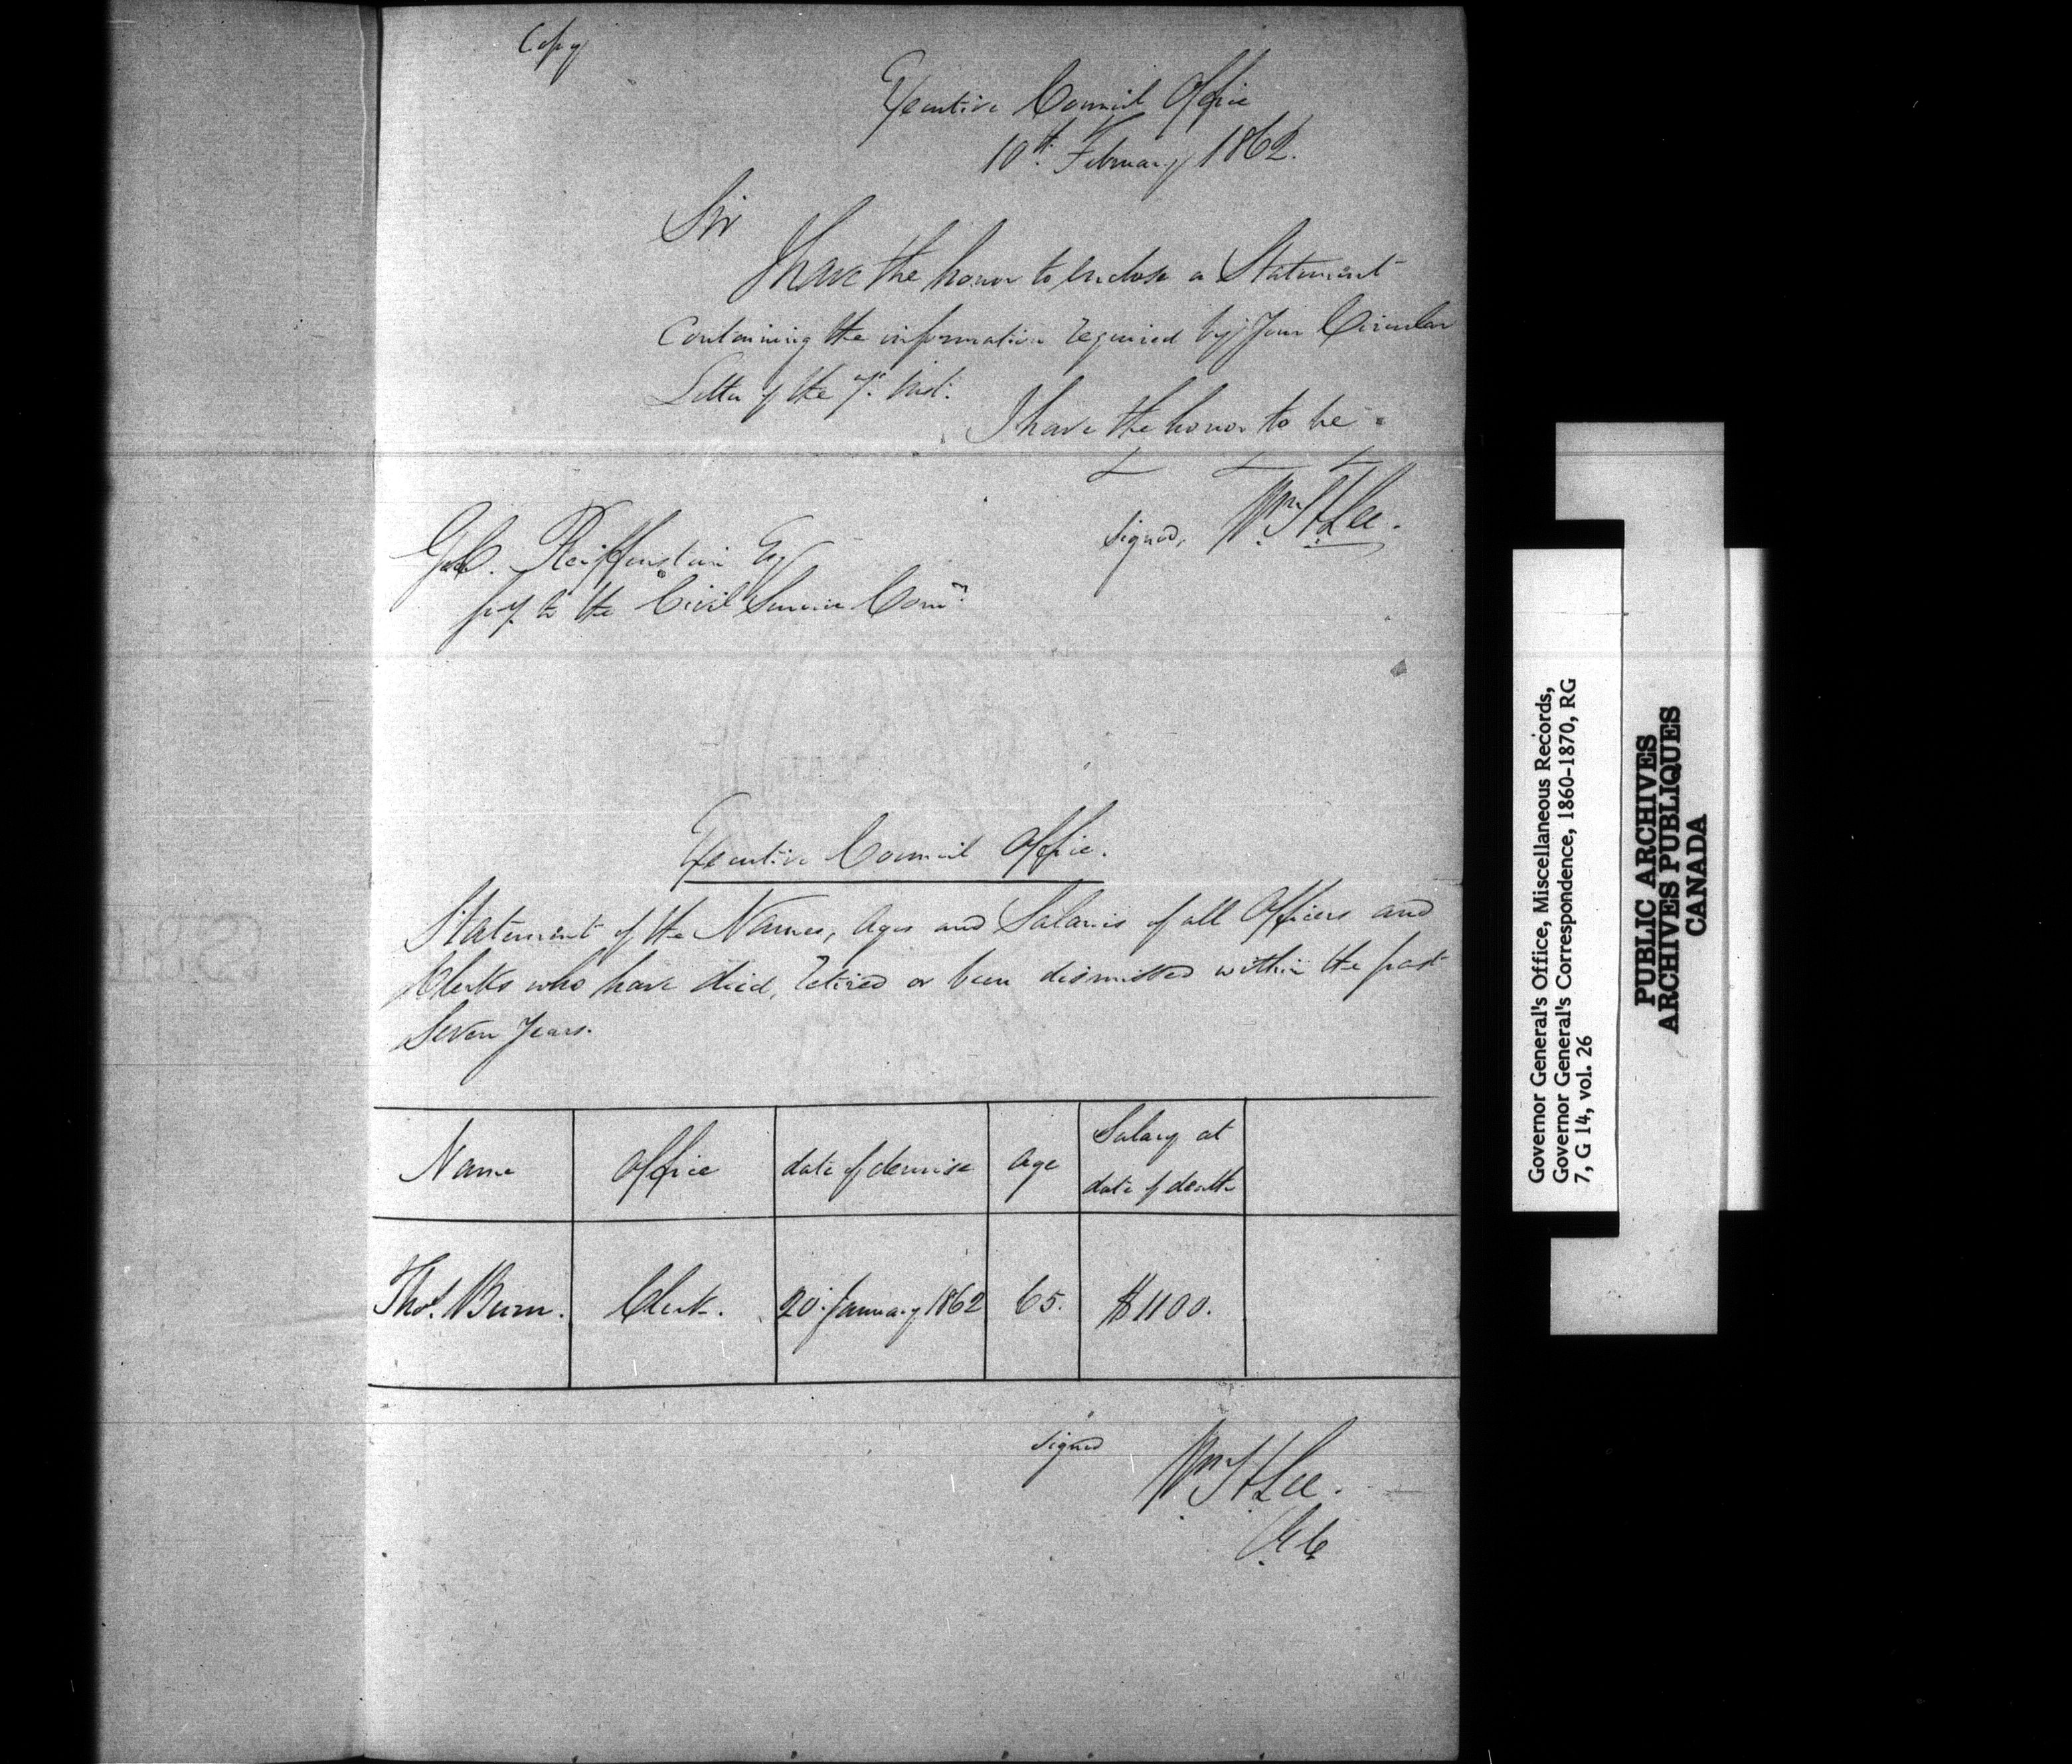 Copy
Executive Council Office
10th. February 1862.
Sir
I have the honor to enclose a Statement
Containing the information required by Your Circular
Letter of the 7th. Inst.
I have the honor to be
signed, Wm. H. Lee.
G. C. Reiffenstein Esq
Secy. to the Civil Service Comn.
Executive Council Office.
Statement of the Names, Ages and Salaries of all Officers and
Clerks who have died, retired or been dismissed within the past
Seven Years.
Name Office date of demise Age Salary at date of death
Thos. Burn. Clerk. 20. January 1862 65. $1100.
signed Wm. H. Lee.
Governor General's Office, Miscellaneous Records,
Governor General's Correspondence, 1860-1870, RG
7, G 14, vol. 26
PUBLIC ARCHIVES
ARCHIVES PUBLIQUES
CANADA